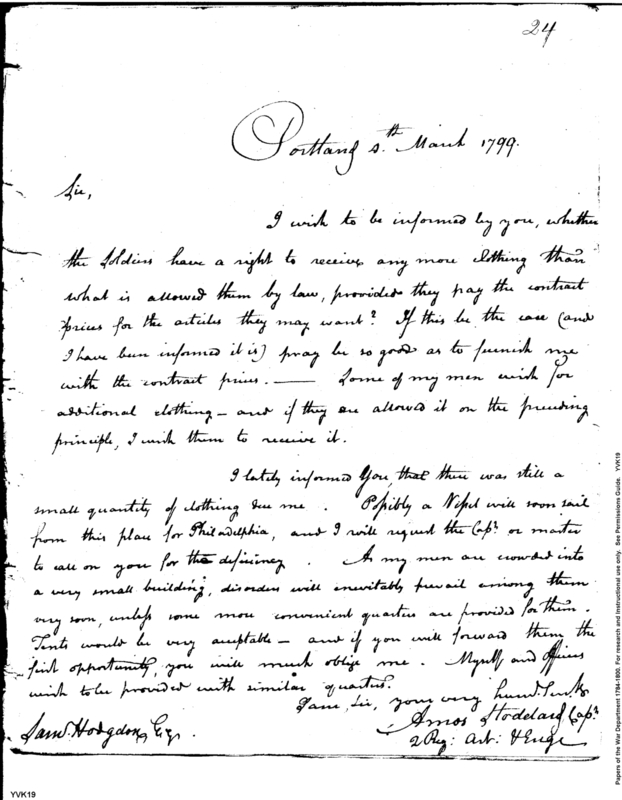 24
Portland 5.th March 1799.
Sir,
I wish to be informed by you, whether
the Soldiers have a right to receive any more clothing than
what is allowed them by law, provided they pay the contract
prices for the articles they may want? If this be the case (and
I have been informed it is) pray be so good as to furnish me
with the contract prices. — Some of my men wish for
additional clothing – and if they are allowed it on the preceding
principle, I wish them to receive it.
I lately informed You that there was still a
small quantity of clothing due me. Possibly a Vessel will soon sail
from this place for Philadelphia, and I will request the Capn. or master
to call on you for the deficiency. As my men are crowded into
a very small building, disorders will inevitably prevail among them
very soon, unless some more convenient quarters are provided for them.
Tents would be very acceptable – and if you will forward them the
first opportunity, you will much oblige me. Myself and Officers
wish to be provided with similar quarters.
I am, Sir, your very hum. Servt.
Amos Stoddard Capn.
2 Reg: Art: & Engr.
Saml. Hodgdon, Esqr.
YVK19
Papers of the War Department 1784-1800. For research and instructional use only. See Permissions Guide. YVK19